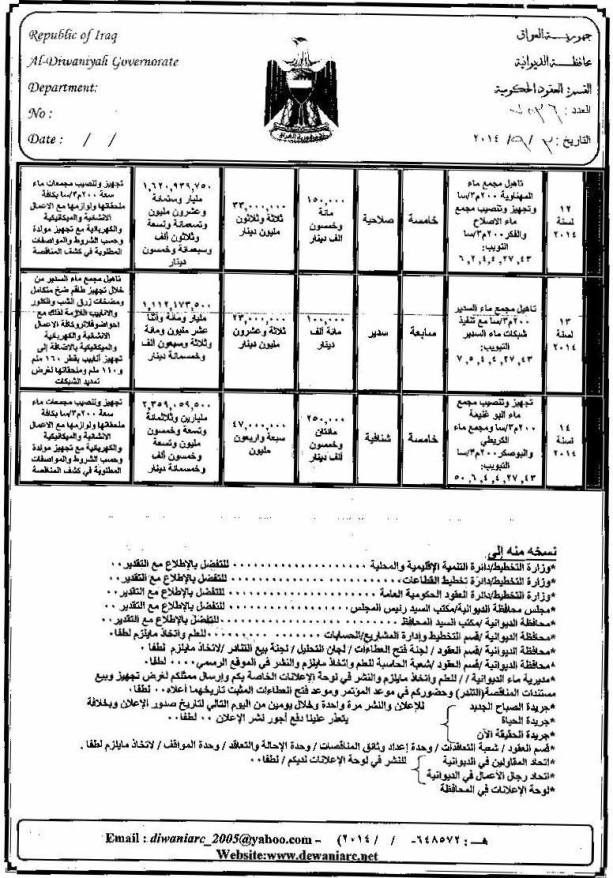 Republic of Iraq
Al-Diwaniyah Governorate
Department:
No :
Date : / /
جمهورية العراق
محافظة الديوانية
القسم: العقود الحكومية
العدد:
التاريخ: ٢٠١٤/٩/٣
١٢
لسنة
٢٠١٤
تاهيل مجمع ماء
المهناوية ٢٠٠م٣/سا
وتجهيز وتنصيب مجمع
ماء الاصلاح
والفكر ٢٠٠م٣/سا
التبويب:
٦,٢,٤,٤,٢٧,٤٣
خامسة
صلاحية
١٥٠,٠٠٠
مائة
وخمسون
الف دينار
٣٣,٠٠٠,٠٠٠
ثلاثة وثلاثون
مليون دينار
١,٦٢٠,٩٣٩,٧٥٠
مليار وستمائة
وعشرون مليون
وتسعمائة وتسعة
وثلاثون ألف
وسبعمائة وخمسون
دينار
تجهيز وتنصيب مجمعات ماء
سعة ٢٠٠م٣/سا بكافة
ملحقاتها ولوازمها مع الاعمال
الانشائية والميكانيكية
والكهربائية مع تجهيز مولدة
وحسب الشروط والمواصفات
المطلوبة في كشف المناقصة
١٣
لسنة
٢٠١٤
تاهيل مجمع ماء السدير
٢٠٠م٣/سا مع تنفيذ
شبكات ماء السدير
التبويب:
٧,٥,٤,٤,٢٧,٤٣
سابعة
سدير
١٠٠,٠٠٠
مائة ألف
دينار
٢٣,٠٠٠,٠٠٠
ثلاثة وعشرون
مليون دينار
١,١١٢,٤٧٣,٥٠٠
مليار ومائة وأثنا
عشر مليون
وثلاثة وسبعون ألف
وخمسمائة دينار
تاهيل مجمع ماء السدير من
خلال تجهيز طاقم ضخ متكامل
ومضخات زرق الشب والكلور
والانابيب اللازمة لذلك مع
الانشائية والكهربائية
والميكانيكية بالاضافة إلى
تجهيز أنابيب بقطر ١٦٠ ملم
و١١٠ ملم وملحقاتها لغرض
تمديد الشبكات
١٤
لسنة
٢٠١٤
تجهيز وتنصيب مجمع
ماء البو غنيمة
٢٠٠م٣/سا ومجمع ماء
الكريطي
والبوصكر ٢٠٠م٣/سا
التبويب:
٥٠,٦,٤,٤,٢٧,٤٣
خامسة
شنافية
٢٥٠,٠٠٠
مائتان
وخمسون
ألف دينار
٤٧,٠٠٠,٠٠٠
سبعة واربعون
مليون
٢,٣٥٩,٠٥٩,٥٠٠
مليارين وثلاثمائة
وتسعة وخمسون
مليون وتسعة
وخمسون ألف
وخمسمائة دينار
تجهيز وتنصيب مجمعات ماء
سعة ٢٠٠م٣/سا بكافة
ملحقاتها ولوازمها مع الاعمال
الانشائية والميكانيكية
والكهربائية مع تجهيز مولدة
وحسب الشروط والمواصفات
المطلوبة في كشف المناقصة
نسخه منه إلى
*وزارة التخطيط/دائرة التنمية الإقليمية والمحلية للتفضل بالإطلاع مع التقدير
*وزارة التخطيط/دائرة تخطيط القطاعات للتفضل بالإطلاع مع التقدير
*وزارة التخطيط/دائرة العقود الحكومية العامة للتفضل بالإطلاع مع التقدير
*مجلس محافظة الديوانية/مكتب السيد رئيس المجلس للتفضل بالإطلاع مع التقدير
*محافظة الديوانية /مكتب السيد المحافظ للتفضل بالإطلاع مع التقدير
*محافظة الديوانية /قسم التخطيط وإدارة المشاريع/الحسابات للعلم وأتخاذ مايلزم لطفا
*محافظة الديوانية /قسم العقود / لجنة فتح العطاءات / لجان التحليل / لجنة بيع التنادر /لاتخاذ مايلزم لطفا
*محافظة الديوانية /قسم العقود /شعبة الحاسبة للعلم وأتخاذ مايلزم والنشر في الموقع الرسمي لطفا
*مديرية ماء الديوانية // للعلم وأتخاذ مايلزم والنشر في لوحة الإعلانات الخاصة بكم وإرسال ممثلكم لغرض تجهيز وبيع
مستندات المناقصة(التندر) وحضوركم في موعد المؤتمر وموعد فتح العطاءات المثبت تاريخهما أعلاه لطفا
*جريدة الصباح الجديد
*جريدة الحياة
*جريدة الحقيقة الآن
للإعلان والنشر مرة واحدة وخلال يومين من اليوم التالي لتاريخ صدور الإعلان وبخلافة
يتعذر علينا دفع أجور نشر الإعلان لطفا
*قسم العقود / شعبة التعاقدات / وحدة إعداد وثائق المناقصات / وحدة الإحالة والتعاقد / وحدة المواقف / لاتخاذ مايلزم لطفا .
*اتحاد المقاولين في الديوانية
*اتحاد رجال الأعمال في الديوانية
*لوحة الإعلانات في المحافظة
للنشر في لوحة الإعلانات لديكم / لطفا
هـ : ٦٤٨٥٧٢- / / ٢٠١٤) – Email : diwaniarc_2005@yahoo.com
Website:www.dewaniarc.net